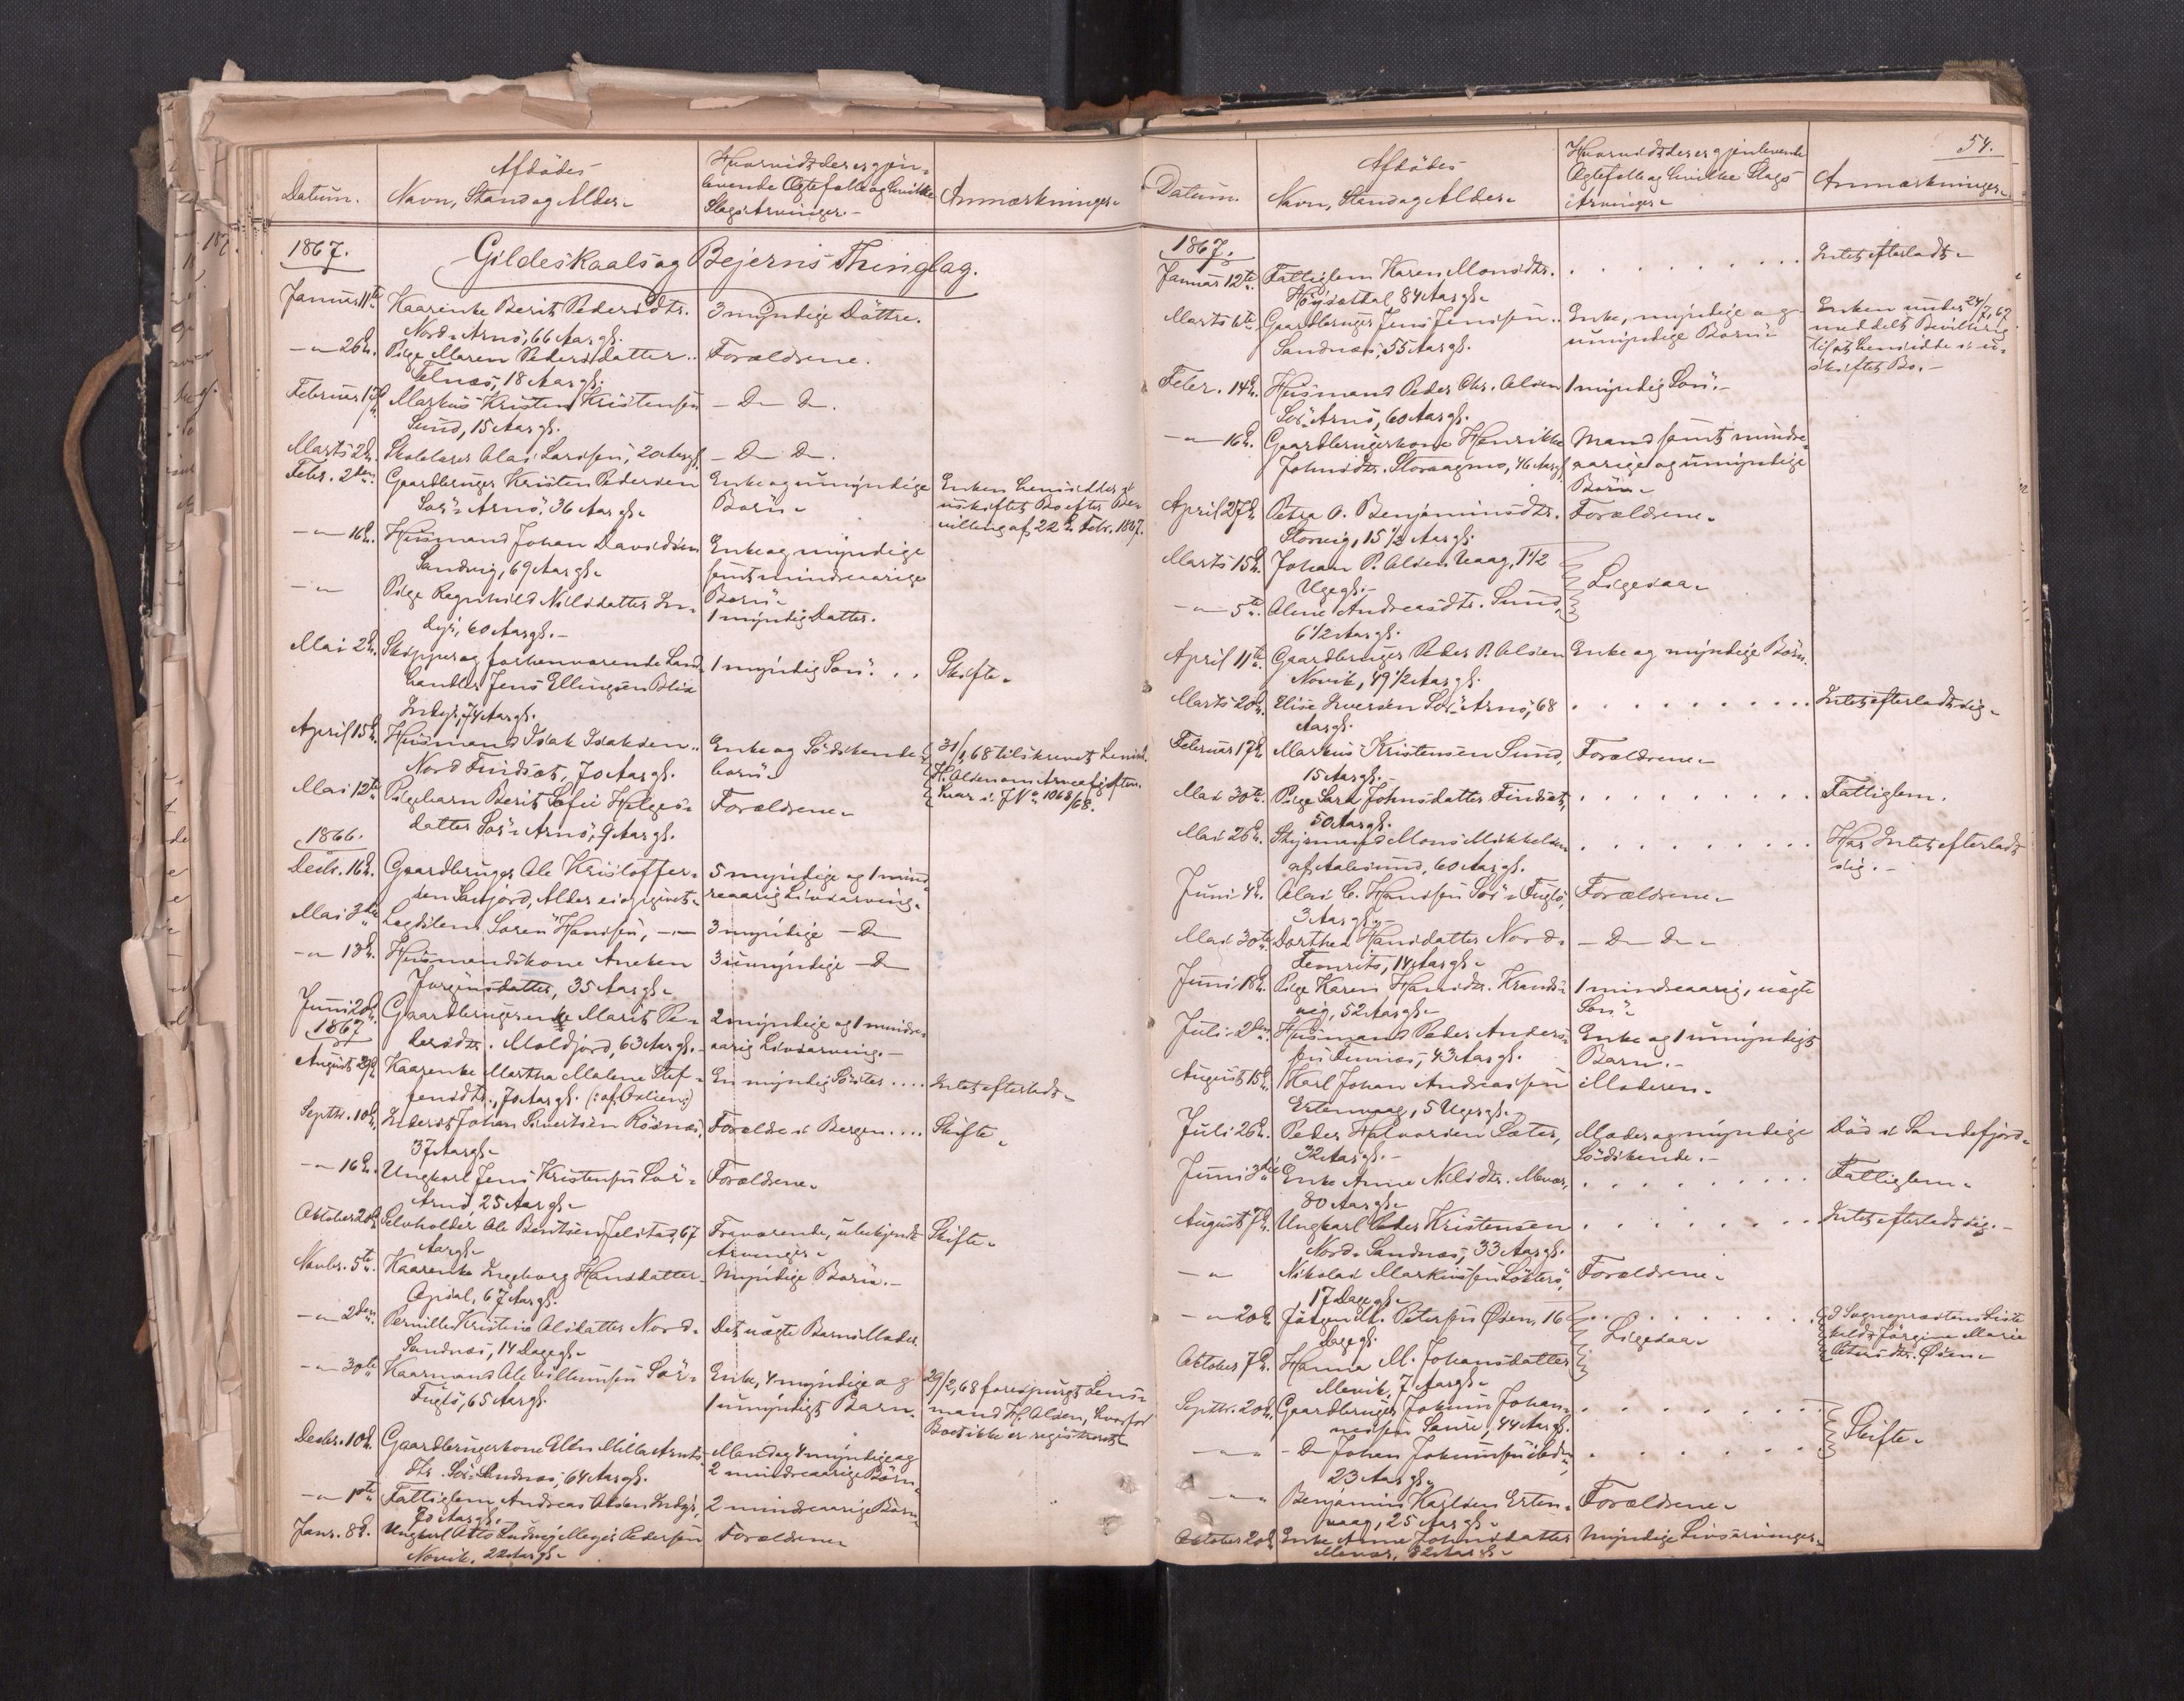 Datum.
Afdödes
Navn, Stand og Alder
Hvorvidt der er gjen-
levende Ægtefolk og hvilke
Slags Arvinger.
Anmærkninger
1867.
Gildeskaals og Bejerns Thinglag.
Januar 11te
Kaarenke Berit Pedersdtr.
Nord-Arnö, 66 Aar gl.
3 myndige Döttre.
-"- 26d.
Pige Maren Pedersdatter
18 Aar gl.
Forældrene.
Februar 17d.
Markus Kristen Kristensen
Sund, 15 Aar gl.
- D - D -
Marts 2d.
Skolelærer Olai Larssen, 20 Aar gl.
- D - D -
Febr. 2den
Gaardbruger Kristen Pedersen
Sör-Arnö, 36 Aar gl.
Enke og umyndige
Börn
Enken hensidder i
uskiftet Bo efter Be-
villing af 22d. Febr. 1867.
-"- 16d.
Husmand Johan Davidsen
Sandvig, 69 Aar gl.
Enke og myndige
samt mindreaarige
Börn
-"-
Pige Ragnhild Nilsdatter In-
dyr, 60 Aar gl.
1 myndig Datter.
Mai 2d.
Skipper og forhenværende Land-
handler Jens Ellingsen Blix
Indyr, 74 Aar gl.
1 myndig Sön
Skifte
April 15d.
Husmand Isak Isaksen
Nord Findsæt, 70 Aar gl.
Enke og Södskende-
börn
31/1 68 tilskrevet Lensm.
H. Olsen om Arveafgiften.
Svar i J No 1068/68.
Mai 12te
Pigebarn Berit Sofie Helges-
datter Sör-Arnö, 9 Aar gl.
Forældrene
1866.
Decbr. 16d.
Gaardbruger Ole Kristoffer-
sen Savfjord, Alder ei opgivet
5 myndige og 1 mind-
reaarig Livsarving.
Mai 3die
Lægdslem Sören Hansen, -"-
3 myndige - D
-"- 13d.
Husmandskone Aneken
Jörginsdatter, 35 Aar gl.
3 umyndige - D
Juni 20d.
Gaardbrugerenke Marit Pe-
dersdtr. Moldjord, 63 Aar gl.
2 myndige og 1 mindre-
aarig Livsarving.
1867
August 29d.
Kaarenke Martha Malene Stef-
fensdtr., 70 Aar gl.
En myndig Söster
Intet efterladt
Septbr. 10d.
Inderst Johan Sivertsen Rösnæs,
37 Aar gl.
Forældre i Bergen
Skifte
-"- 16d.
Ungkarl Jens Kristensen Sör-
Arnö, 25 Aar gl.
Forældrene
Oktober 20d.
Selvholder Ole Bentsen Jelstad, 67
Aar gl.
Fraværende, ubekjendte
Arvinger
Skifte
Novbr. 5te
Kaarenke Ingeborg Hansdatter
Opdal, 67 Aar gl.
Myndige Börn.
-"- 2den
Pernille Kristine Olsdatter Nord-
Sandnæs, 14 Dage gl.
Det uægte Barns Moder.
-"- 30te
Kaarmand Ole Villumsen Sör-
Fuglö, 65 Aar gl.
Enke, 4 myndige og
1 umyndigt Barn.
29/2, 68 forespurgt Lens-
mand H. Olsen, hvorfor
Boet ikke er registreret
Decbr. 10d.
Gaardbrugerkone Elen Milla Arnts-
dtr. Sör-Sandnæs, 64 Aar gl.
Mand og 4 myndige og
2 mindreaarige Börn
-"- 1ste
Fattiglem Andreas Olsen Indyr,
70 Aar gl.
2 mindreaarige Börn
Janr. 8d.
Ungkarl Otto Ludvig Meyer Pedersen
Novik, 22 Aar gl.
Forældrene
54.
Datum.
Afdödes
Navn, Stand og Alder
Hvorvidt der er gjenlevende
Ægtefolk og hvilke Slags
Arvinger
Anmærkninger
1867.
Januar 12te
Fattiglem Karen Monsdtr.
84 Aar gl.
Intet efterladt
Marts 6te
Gaardbruger Jens Jensen
Sandnæs, 55 Aar gl.
Enke, myndige og
umyndige Börn
Enken under 24/7, 67
meddelt Bevilling
til at hensidde i u-
skiftet Bo.
Febr. 14d.
Husmand Peder Chr. Olsen
Sör-Arnö, 60 Aar gl.
1 myndig Sön.
-"- 16d.
Gaardbrugerkone Henrikke
Johnsdtr. Storaagmo, 46 Aar gl.
Mand samt mindre-
aarige og umyndige
Börn
April 27d.
Petra O. Benjaminsdtr.
Storvig, 15 1/2 Aar gl.
Forældrene
Marts 15d.
Johan P. Olsen Vaag, 1 1/2
Uge gl.
Ligesaa
-"- 5te
Oline Andreasdtr. Sund,
6 1/2 Aar gl.
April 11te
Gaardbruger Peder P. Olsen
Novik, 49 1/2 Aar gl.
Enke og myndige Börn.
Marts 20d.
Elise Iversen Sör-Arnö, 68
Aar gl.
Intet efterladt sig
Februar 17d.
Markus Kristensen Sund,
15 Aar gl.
Forældrene
Mai 30te
Pige Sara Johnsdatter Findsæt,
50 Aar gl.
Fattiglem.
Mai 26d.
Styrmand Mons Mikkelsen
af Aalesund, 60 Aar gl.
Har Intet efterladt
sig.
Juni 4d.
Olai C. Hansen Sör-Fuglö,
3 Aar gl.
Forældrene
Mai 30te
Dorthea Hansdatter Nord-
14 Aar gl.
- D - D -
Juni 18d.
Pige Karen Hansdtr. Krands-
vig, 52 Aar gl.
1 mindreaarig, uægte
Sön
Juli 2den
Husmand Peder Anders-
sen 43 Aar gl.
Enke og 1 umyndigt
Barn.
August 15d.
Karl Johan Andreassen
Ertenvaag, 5 Uger gl.
Moderen
Juli 26d.
Peder Halvorsen Sæter,
32 Aar gl.
Moder og myndige
Södskende.
Död i Sandefjord
Juni 3die
Enke Anne Nilsdtr. Mevær,
80 Aar gl.
Fattiglem
August 7d.
Ungkarl Peder Kristensen
Nord-Sandnæs, 33 Aar gl.
Intet efterladt sig.
-"-
Nikolai Markussen
17 Dage gl.
Forældrene
-"- 20d.
Jörgen M. Petersen Øien, 16
Dage gl.
Ligesaa
I Sognepræstens Liste
kaldt Jörgine Marie
Petersdtr. Øien
Oktober 7d.
Hanna M. Johansdatter
Mevik, 7 Aar gl.
Septbr. 20d.
Gaardbruger Jokum Johan-
nessen Saure, 44 Aar gl.
Skifte
-"-
- D - Johan Jokumsen ibidm,
23 Aar gl.
-"-
Benjamin Karlsen Erten-
vaag, 25 Aar gl.
Forældrene
Oktober 20d.
Enke Anne Johnsdatter
Mevær, 82 Aar gl.
Myndige Livsarvinger